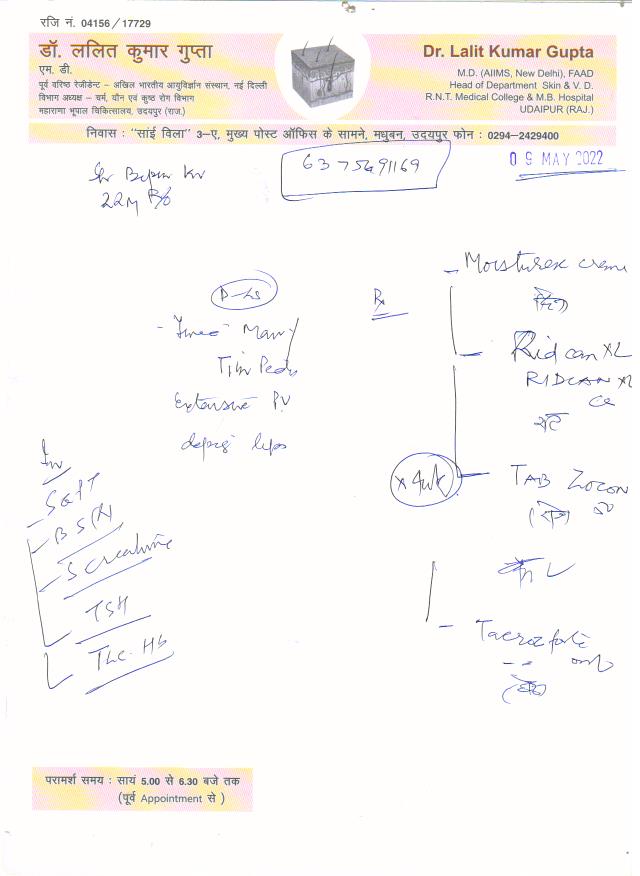 रजि नं. 04156/17729
डॉ. ललित कुमार गुप्ता
एम. डी.
पूर्व वरिष्ठ रेजीडेन्ट – अखिल भारतीय आयुर्विज्ञान संस्थान, नई दिल्ली
विभाग अध्यक्ष – चर्म, यौन एवं कुष्ठ रोग विभाग
महाराणा भूपाल चिकित्सालय, उदयपुर (राज.)
Dr. Lalit Kumar Gupta
M.D. (AIIMS, New Delhi), FAAD
Head of Department Skin & V. D.
R.N.T. Medical College & M.B. Hospital
UDAIPUR (RAJ.)
निवास : "सांई विला" 3–ए, मुख्य पोस्ट ऑफिस के सामने, मधुबन, उदयपुर फोन : 0294–2429400
6375691169
09 MAY 2022
22M
Moisturex creme
Rx
Ridcan XL
RIDCAN XL
Extensive PV
depig lips
x 4wk
TAB ZOCON
Inv
SGPT
BS(R)
S creatinine
TSH
TLC. Hb
Tacroz forte
oint
परामर्श समय : सायं 5.00 से 6.30 बजे तक
(पूर्व Appointment से )